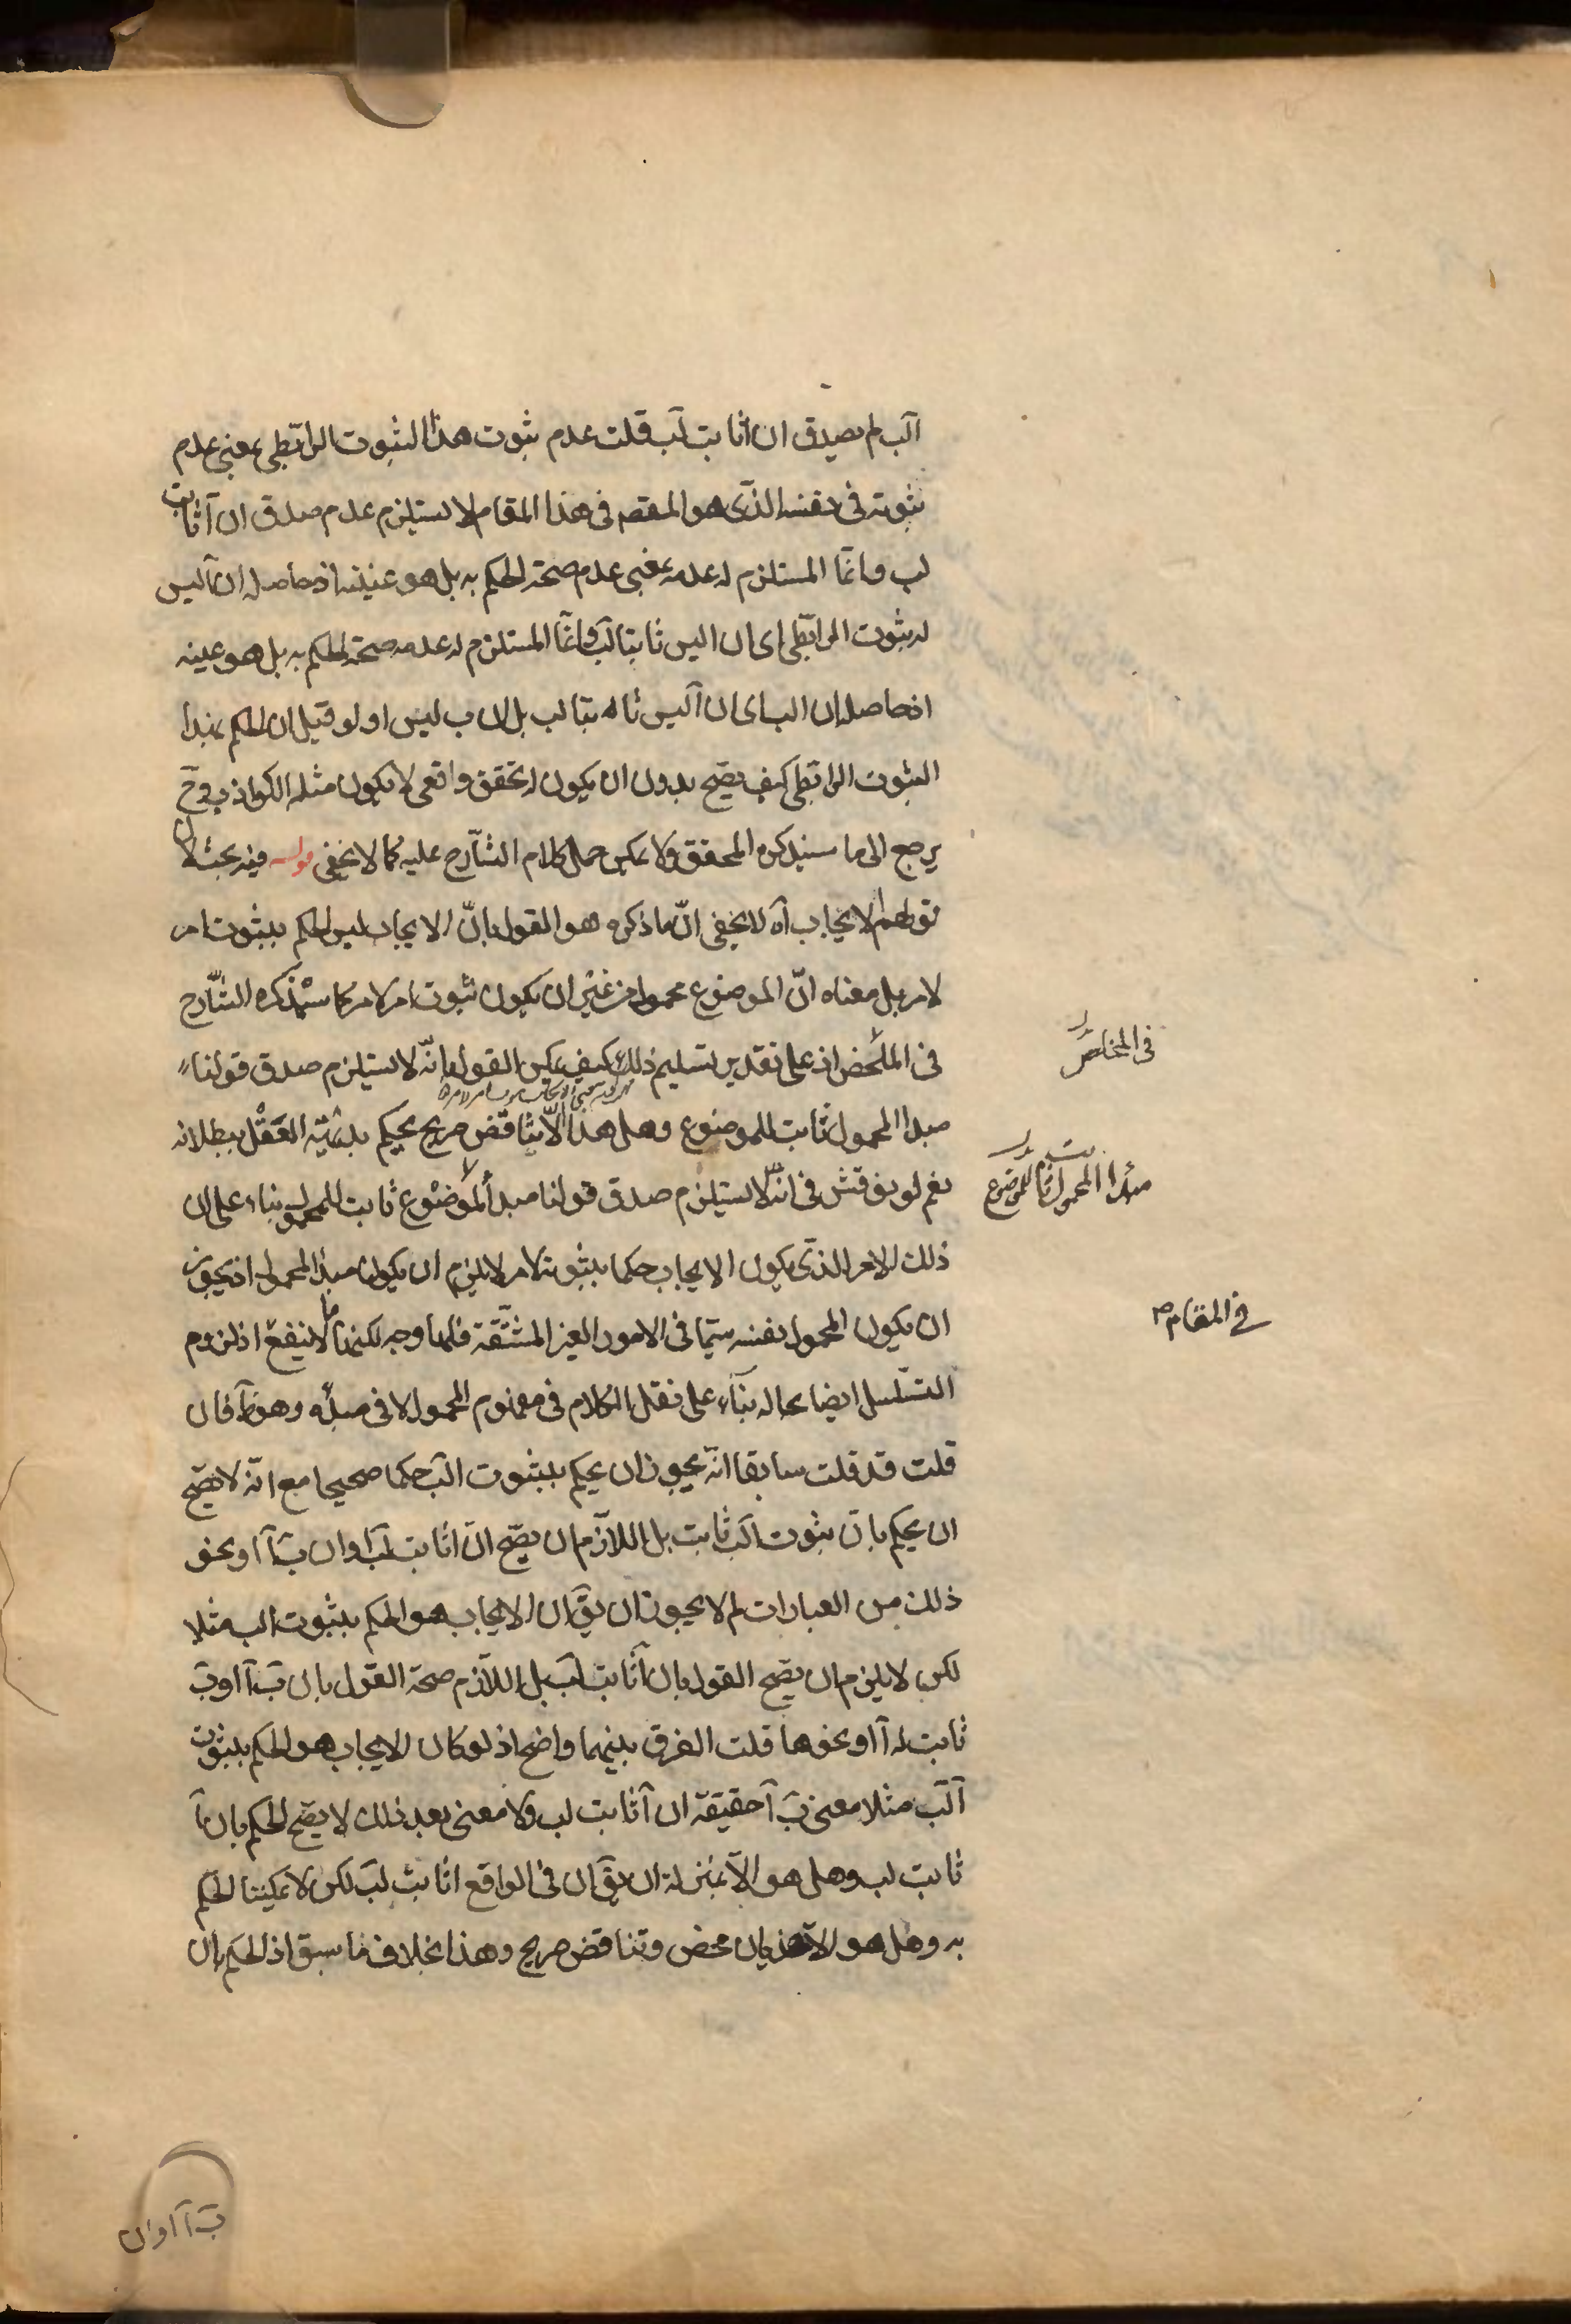 آلب لم يصدق ان اثابت لب قلت عدم ثبوت هذا الثبوت الرابطى بمعنى عدم
ثبوته فى نفسه الذى هو المقصم فى هذا المقام لا يستلزم عدم صدق ان آ ثابت
لب وانما المستلزم له عدمه بمعنى عدم صحة الحكم به بل هو عينه اذ حاصله ان آ ليس
له ثبوت الرابطى اى ان اليس ثابتا لب وانما المستلزم له عدمه صحة الحكم به بل هو عينه
اذ حاصله ان الب اى ان آ ليس ثابتا لب بل ان ب ليس ا ولو قيل ان الحكم بهذا
الثبوت الرابطى كيف يصح بدون ان يكون له تحقق واقعى لا يكون مثله الكواذب وح
يرجع الى ما سيذكره المحقق ولا يمكن حمل كلام الشارح عليه كما لا يخفى قوله فيه بحث لان
قولهم الايجاب آه لا يخفى ان ما ذكره هو القول بان الايجاب ليس الحكم بثبوت امر
لامر بل معناه ان الموضوع محمول من غير ان يكون ثبوت امر لامر كما سيذكره الشارح
فى الملخص اذ على تقدير تسليم ذلك كيف يمكن القول بانه لا يستلزم صدق قولنا
مبدا المحمول ثابت للموضوع وهل هذا الا تناقض صريح يحكم بديهة العقل ببطلانه
نعم لو نوقش فى انه لا يستلزم صدق قولنا مبدا الموضوع ثابت للمحمول بناء على ان
ذلك الامر الذى يكون الايجاب حكما بثبوته لامر لا يلزم ان يكون مبدا المحمول اذ يجوز
ان يكون المحمول نفسه سيما فى الامور الغير المشتقة فلها وجه لكنها لا ينفع اذ لزوم
التسلسل ايضا بحاله بناء على نقل الكلام فى مفهوم المحمول لا فى مبدئه وهو ظ فان
قلت قد قلت سابقا انه يجوز ان يحكم بثبوت الب حكما صحيحا مع انه لا يصح
ان يحكم بان ثبوت الب ثابت بل اللازم ان يصح ان اثابت لب او ان ب آ او نحو
ذلك من العبارات لم لا يجوز ان يق ان الايجاب هو الحكم بثبوت الب مثلا
لكن لا يلزم ان يصح القول بان آ ثابت لب بل اللازم صحة القول بان ب آ او ب
ثابت له آ او نحوها قلت الفرق بينهما واضح اذ لو كان الايجاب هو الحكم بثبوت
آلب مثلا معنى ب آ حقيقة ان آ ثابت لب ولا معنى بعد ذلك لا يصح الحكم بان آ
ثابت لب وهل هو الا بمنزلة ان يق ان فى الواقع اثابت لب لكن لا يمكننا الحكم
به وهل هو الا هذيان محض وتناقض صريح وهذا بخلاف ما سبق اذ الحكم بان
فى الملخص
مبدا المحمول ثابت للموضوع
فى المقام
ب آ او ان